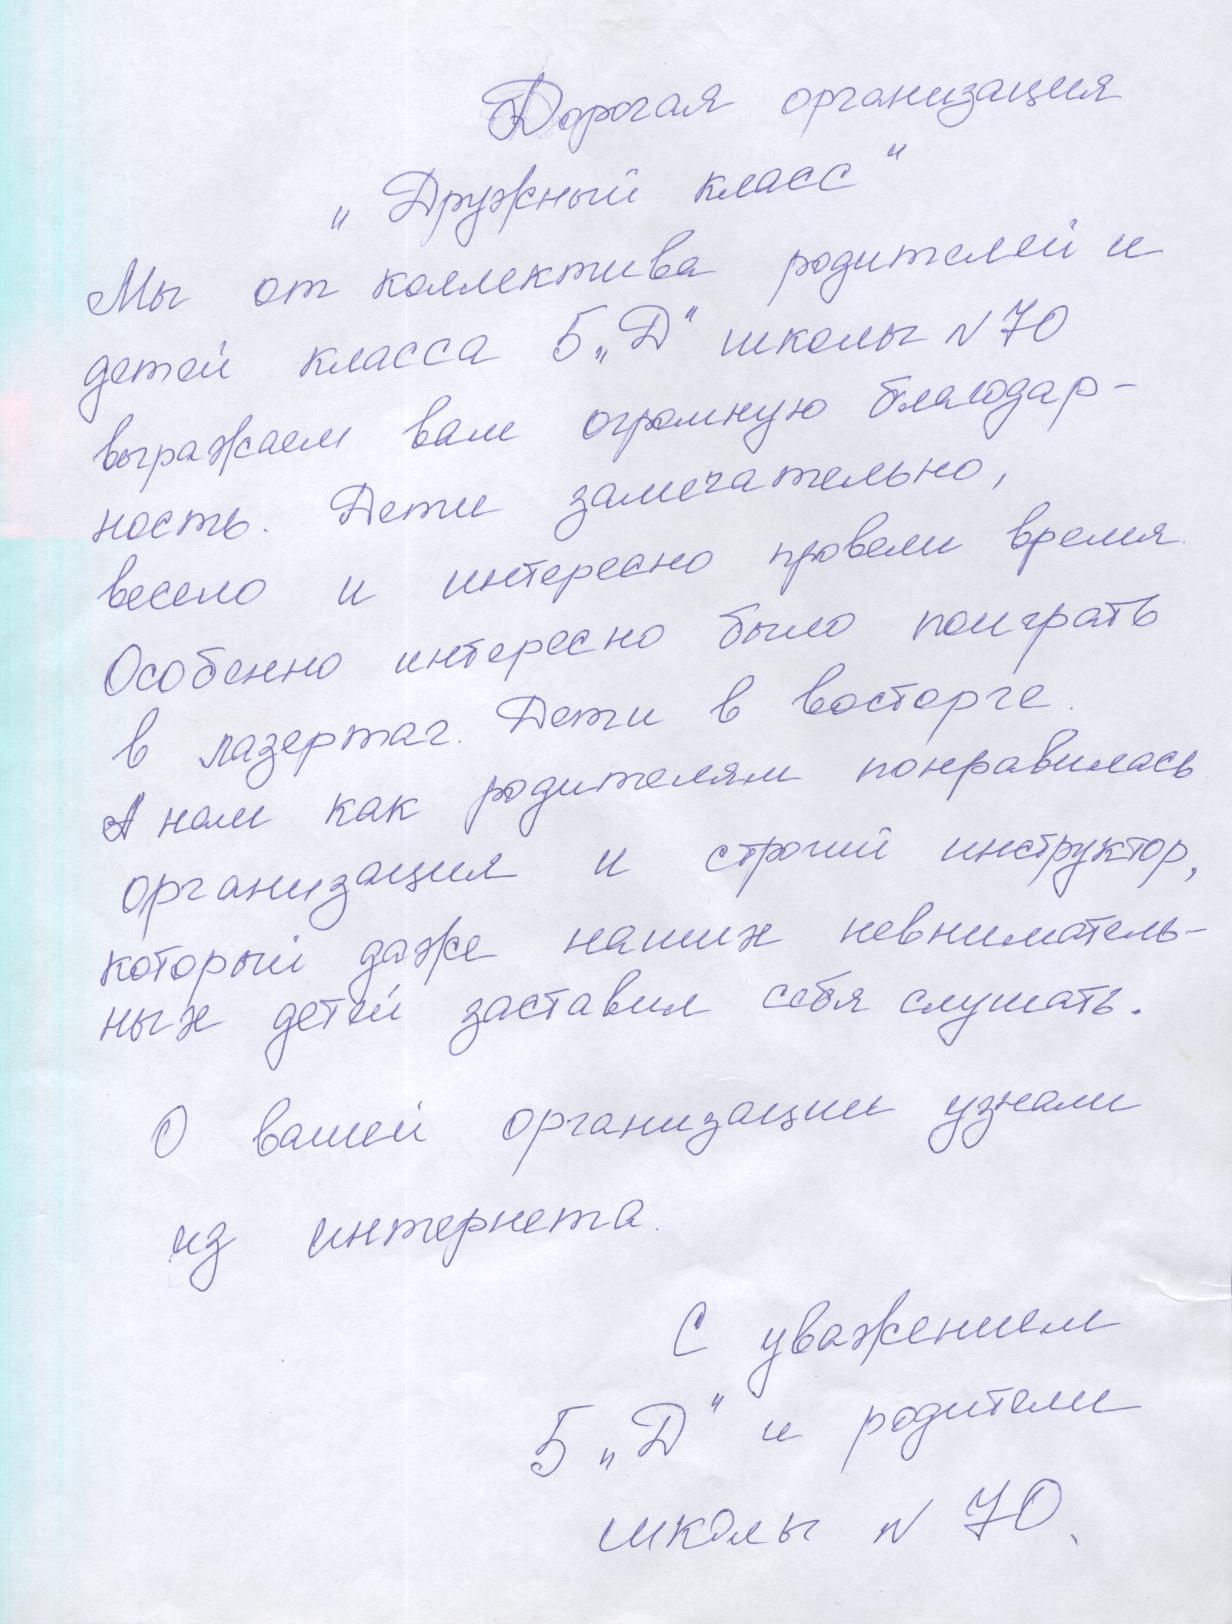 Дорогая организация
„Дружный класс"
Мы от коллектива родителей и
детей класса 5 „Д" школы N 70
выражаем вам огромную благодар-
ность. Дети замечательно,
весело и интересно провели время.
Особенно интересно было поиграть
в лазертаг. Дети в восторге.
А нам как родителям понравилась
организация и строгий инструктор,
который даже наших невниматель-
ных детей заставил себя слушать.
О вашей организации узнали
из интернета.
С уважением
5 „Д" и родители
школы N 70.